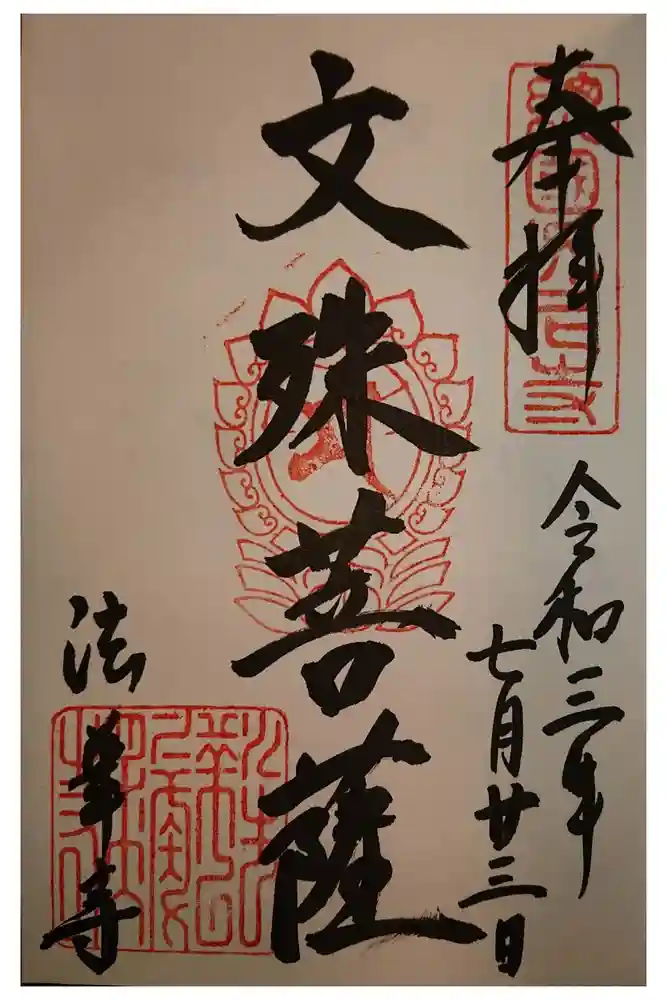 奉拝
令和三年
七月廿三日
文殊菩薩
法華寺